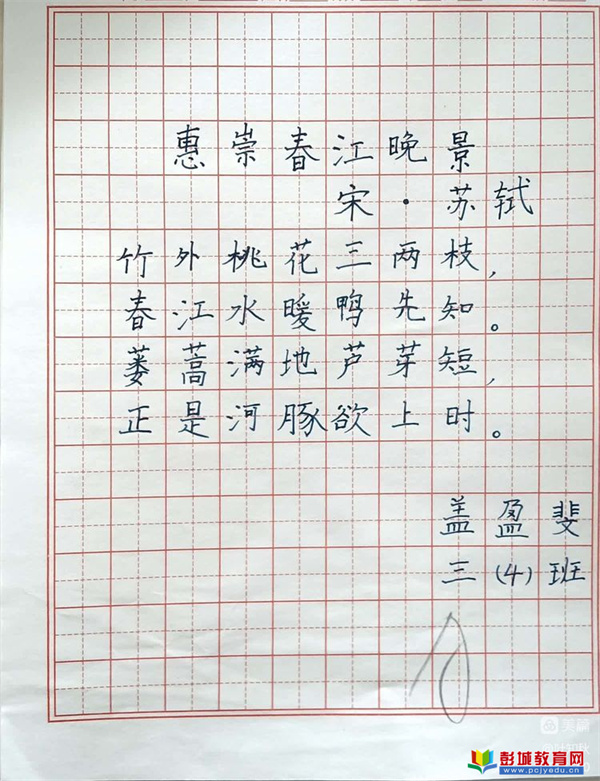 惠崇春江晚景
宋·苏轼
竹外桃花三两枝，
春江水暖鸭先知。
蒌蒿满地芦芽短，
正是河豚欲上时。
盖盈斐
三（4）班
美篇
彭城教育网
www.pcjyedu.cn